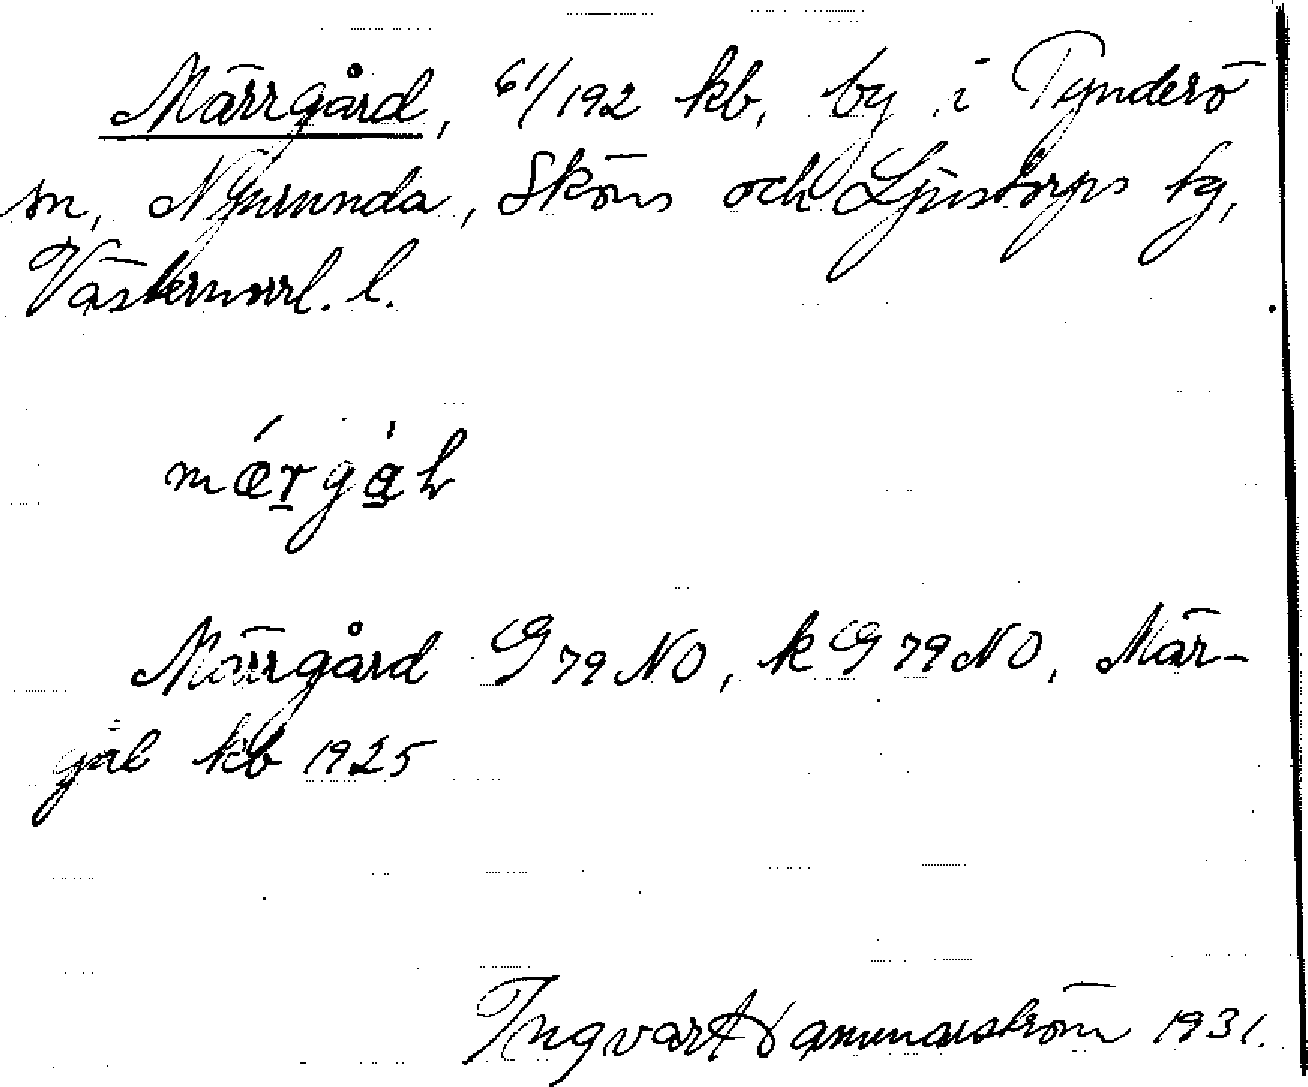 Märrgård, 61/192 kb, by i Tynderö
sn, Njurunda, Sköns och Ljustorps tg,
Västernorrl. l.
Märrgård G 79 NO, k G 79 NO, Mär-
gål kb 1925
Ingvar Hammarström 1931.